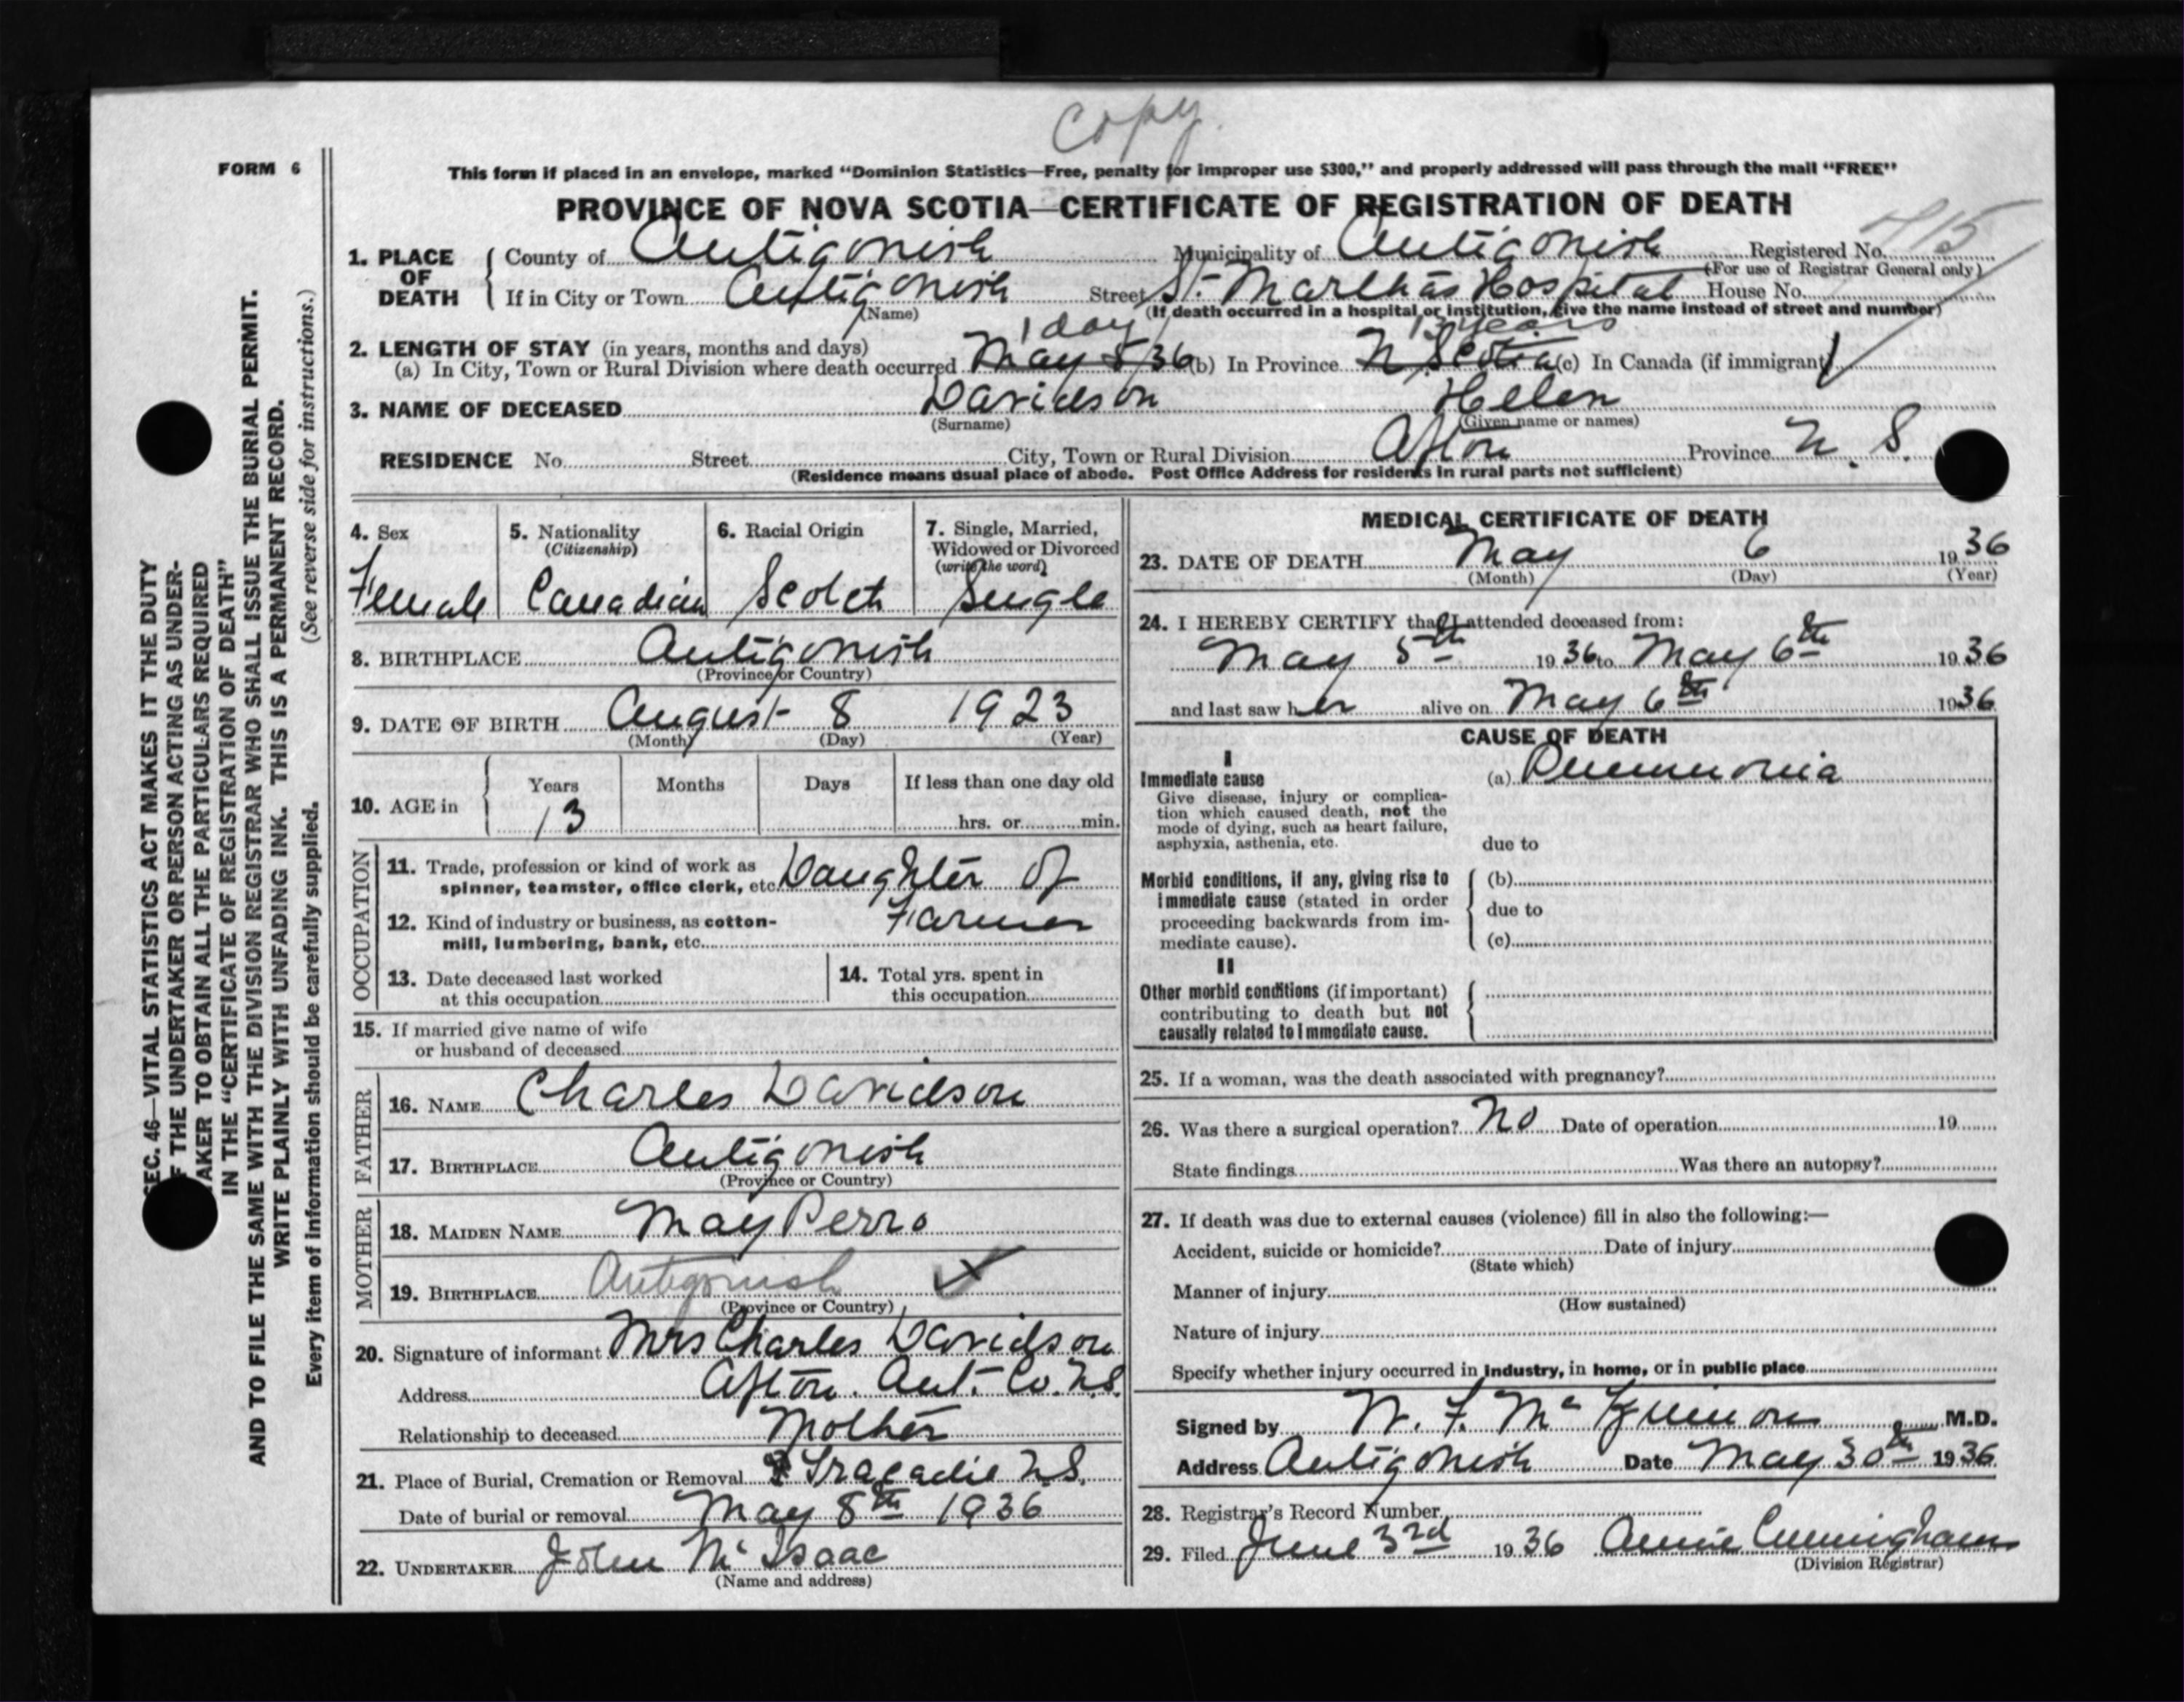 copy
FORM 6
This form if placed in an envelope, marked "Dominion Statistics—Free, penalty for improper use $300," and properly addressed will pass through the mail "FREE"
PROVINCE OF NOVA SCOTIA—CERTIFICATE OF REGISTRATION OF DEATH
415
1. PLACE OF DEATH County of Antigonish Municipality of Antigonish Registered No.
(For use of Registrar General only)
If in City or Town Antigonish Street St. Martha's Hospital House No.
(Name) (If death occurred in a hospital or institution, give the name instead of street and number)
1 day 13 years
2. LENGTH OF STAY (in years, months and days)
(a) In City, Town or Rural Division where death occurred May 5/36 (b) In Province N. Scotia (c) In Canada (if immigrant)
3. NAME OF DECEASED Davidson Helen
(Surname) (Given name or names)
RESIDENCE No. Street City, Town or Rural Division Afton Province N. S.
(Residence means usual place of abode. Post Office Address for residents in rural parts not sufficient)
4. Sex
Female
5. Nationality
(Citizenship)
Canadian
6. Racial Origin
Scotch
7. Single, Married,
Widowed or Divorced
(write the word)
Single
8. BIRTHPLACE Antigonish
(Province or Country)
9. DATE OF BIRTH August 8 1923
(Month) (Day) (Year)
10. AGE in Years Months Days If less than one day old
13 hrs. or min.
OCCUPATION
11. Trade, profession or kind of work as
spinner, teamster, office clerk, etc. Daughter of
12. Kind of industry or business, as cotton- Farmer
mill, lumbering, bank, etc.
13. Date deceased last worked
at this occupation
14. Total yrs. spent in
this occupation
15. If married give name of wife
or husband of deceased
FATHER
16. NAME Charles Davidson
17. BIRTHPLACE Antigonish
(Province or Country)
MOTHER
18. MAIDEN NAME May Perro
19. BIRTHPLACE Antigonish
(Province or Country)
20. Signature of informant Mrs Charles Davidson
Address Afton. Ant. Co. N.S.
Relationship to deceased Mother
21. Place of Burial, Cremation or Removal Tracadie N.S.
Date of burial or removal May 8th 1936
22. UNDERTAKER John McIsaac
(Name and address)
MEDICAL CERTIFICATE OF DEATH
23. DATE OF DEATH May 6 1936
(Month) (Day) (Year)
24. I HEREBY CERTIFY that I attended deceased from:
May 5th 1936 to May 6th 1936
and last saw her alive on May 6th 1936
CAUSE OF DEATH
I
Immediate cause (a) Pneumonia
Give disease, injury or complica-
tion which caused death, not the
mode of dying, such as heart failure,
asphyxia, asthenia, etc. due to
Morbid conditions, if any, giving rise to (b)
immediate cause (stated in order due to
proceeding backwards from im-
mediate cause). (c)
II
Other morbid conditions (if important)
contributing to death but not
causally related to immediate cause.
25. If a woman, was the death associated with pregnancy?
26. Was there a surgical operation? No Date of operation 19
State findings Was there an autopsy?
27. If death was due to external causes (violence) fill in also the following:—
Accident, suicide or homicide? Date of injury
(State which)
Manner of injury
(How sustained)
Nature of injury
Specify whether injury occurred in industry, in home, or in public place
Signed by W. F. McKinnon M.D.
Address Antigonish Date May 30th 1936
28. Registrar's Record Number
29. Filed June 3rd 1936 Annie Cunningham
(Division Registrar)
SEC. 46—VITAL STATISTICS ACT MAKES IT THE DUTY
OF THE UNDERTAKER OR PERSON ACTING AS UNDER-
TAKER TO OBTAIN ALL THE PARTICULARS REQUIRED
IN THE "CERTIFICATE OF REGISTRATION OF DEATH"
AND TO FILE THE SAME WITH THE DIVISION REGISTRAR WHO SHALL ISSUE THE BURIAL PERMIT.
WRITE PLAINLY WITH UNFADING INK. THIS IS A PERMANENT RECORD.
Every item of information should be carefully supplied. (See reverse side for instructions.)